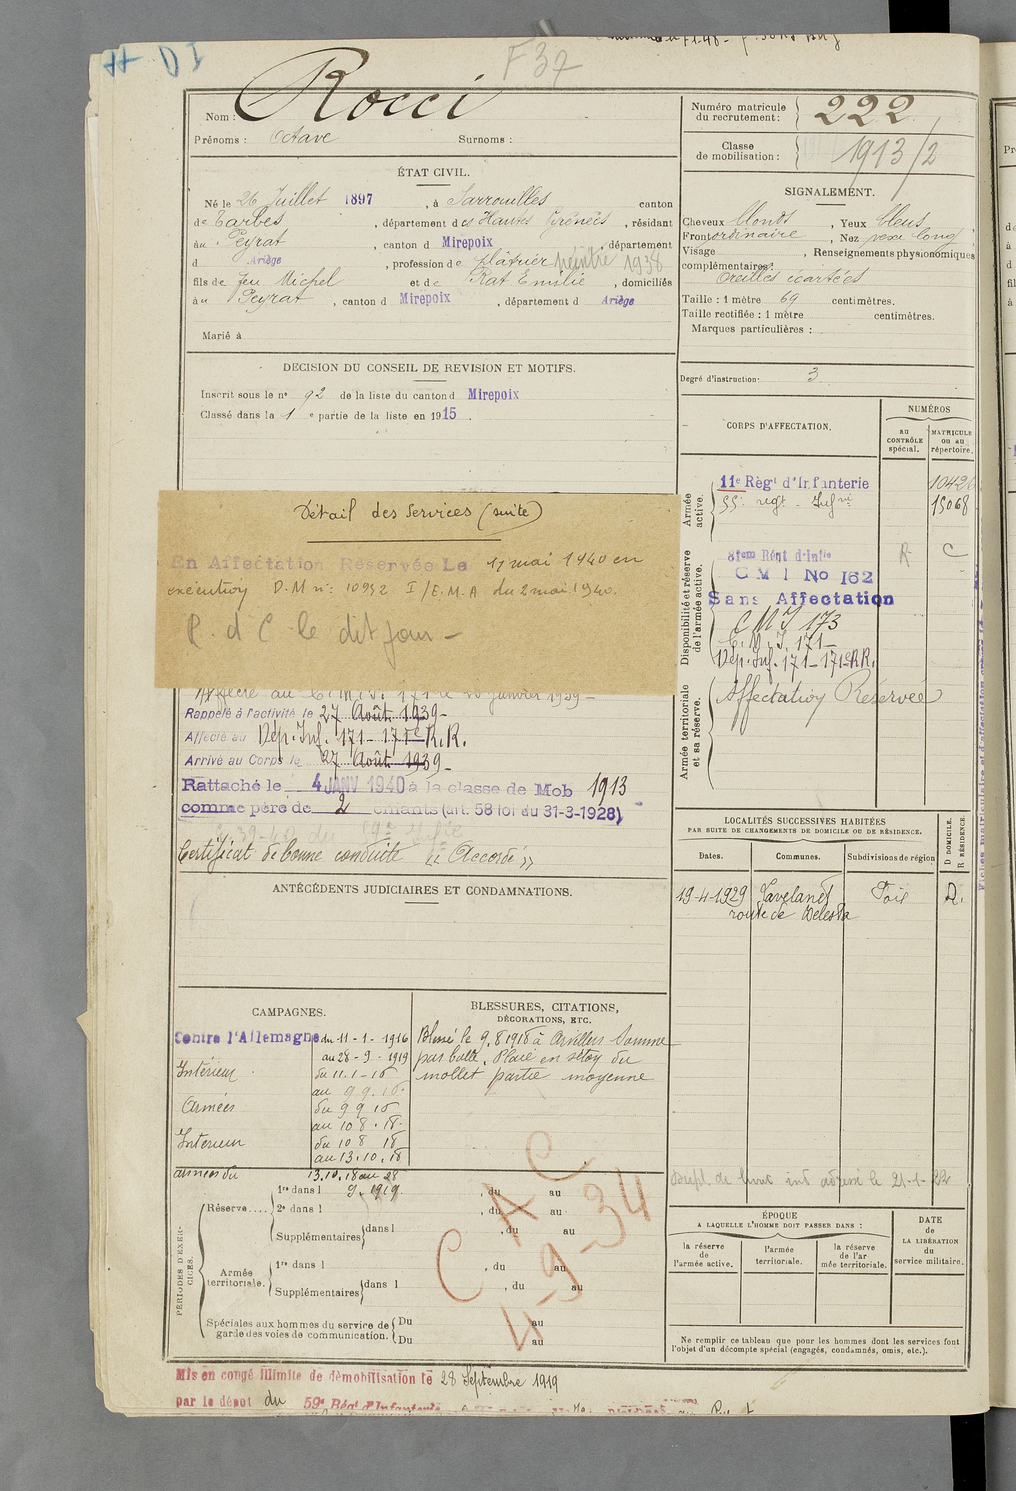 F 37
Nom : Rocci
Prénoms : Octave Surnoms :
Numéro matricule du recrutement : 222
Classe de mobilisation : 1913/2
ÉTAT CIVIL.
Né le 26 Juillet 1897, à Sarrouilles canton
de Tarbes, département des Hautes Pyrénées, résidant
au Peyrat, canton d Mirepoix, département
d Ariège, profession de plâtrier peintre 1938
fils de feu Michel et de Rat Emilie, domiciliés
à u Peyrat, canton d Mirepoix, département d Ariège
Marié à
SIGNALEMENT.
Cheveux blonds, Yeux bleus
Front ordinaire, Nez long
Visage , Renseignements physionomiques
complémentaires :
Oreilles écartées
Taille : 1 mètre 69 centimètres.
Taille rectifiée : 1 mètre centimètres.
Marques particulières :
Degré d'instruction : 3
DECISION DU CONSEIL DE REVISION ET MOTIFS.
Inscrit sous le n° 92 de la liste du canton d Mirepoix
Classé dans la 1 e partie de la liste en 1915.
CORPS D'AFFECTATION.
NUMÉROS
AU CONTRÔLE spécial.
MATRICULE ou au répertoire.
Armée active.
11e Régt d'Infanterie 10426
55e regt Infrie 15068
Disponibilité et réserve de l'armée active.
81em Régt d'Infie R C
C M I No 162
Sans Affectation
C M I 173
C. M. I. 171
Dép. Inf. 171 - 171e R.R.
Armée territoriale et sa réserve.
Affectation Réservée
Détail des Services (suite)
En Affectation Réservée Le 11 mai 1940 en
exécution D.M n°: 10932 I/E.M.A du 2 mai 1940.
R. d C. le dit jour -
Affecté au C.M.I. 171 le janvier 1939 -
Rappelé à l'activité le 27 Août 1939 -
Affecté au Dép. Inf. 171 - 171e R.R.
Arrivé au Corps le 27 Août 1939 -
Rattaché le 4 JANV 1940 à la classe de Mob 1913
comme père de 2 enfants (art. 58 loi du 31-3-1928)
Certificat de bonne conduite « Accordé »
ANTÉCÉDENTS JUDICIAIRES ET CONDAMNATIONS.
LOCALITÉS SUCCESSIVES HABITÉES
PAR SUITE DE CHANGEMENTS DE DOMICILE OU DE RÉSIDENCE.
Dates. Communes. Subdivisions de région
D DOMICILE. R RÉSIDENCE.
19-4-1929 Lavelanet Foix D.
route de Belesta
CAMPAGNES.
Contre l'Allemagne du 11-1-1916
au 28-9-1919
Intérieur du 11-1-16
au 9.9.16
Armées du 9 9 16
au 10 8.18
Intérieur du 10 8 18
au 13.10.18
armées du 13.10.18 au 28
9.1919.
BLESSURES, CITATIONS,
DÉCORATIONS, ETC.
Blessé le 9.8 1918 à Arvillers Somme
par balle. Plaie en séton du
mollet partie moyenne
PÉRIODES D'EXERCICES.
Réserve.... 1re dans l , du au
2e dans l , du au
Supplémentaires dans l , du au
Armée territoriale. 1re dans l , du au
Supplémentaires dans l , du au
Spéciales aux hommes du service de garde des voies de communication. Du au
Du au
C A C
4-9-34
Dupl. de livret ind adressé le 21-1-
ÉPOQUE
A LAQUELLE L'HOMME DOIT PASSER DANS :
la réserve de l'armée active.
l'armée territoriale.
la réserve de l'ar mée territoriale.
DATE DE LA LIBÉRATION du service militaire.
Ne remplir ce tableau que pour les hommes dont les services font
l'objet d'un décompte spécial (engagés, condamnés, omis, etc.).
Mis en congé illimité de démobilisation le 28 Septembre 1919
par le dépôt du 59e Régt d'Infanterie